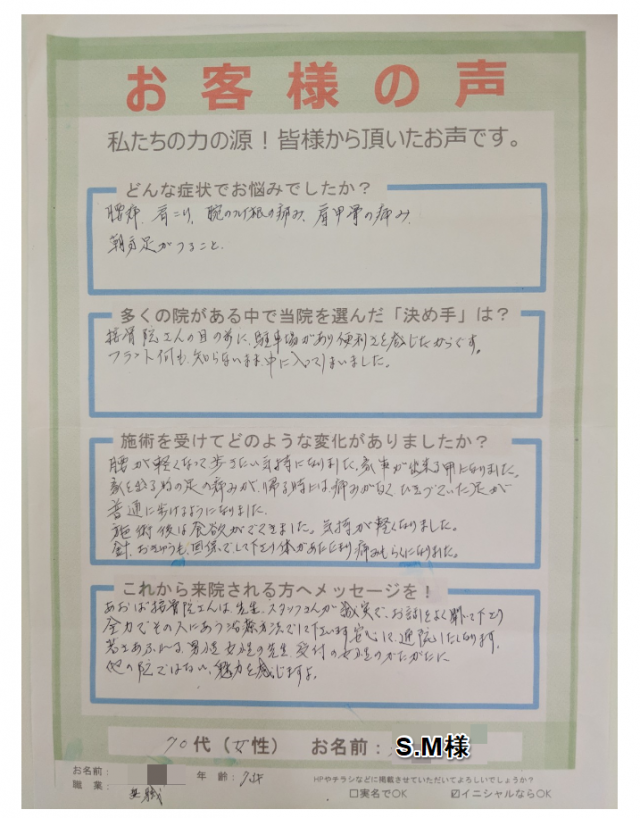 お客様の声
私たちの力の源！皆様から頂いたお声です。
どんな症状でお悩みでしたか？
腰痛、肩こり、腕の付け根の痛み、肩甲骨の痛み、
朝方足がつること、
多くの院がある中で当院を選んだ「決め手」は？
接骨院さんの目の前に、駐車場があり便利さを感じたからです。
フラット何も知らないまま中に入ってしまいました。
施術を受けてどのような変化がありましたか？
腰が軽くなって歩きたい気持になりました、家事が出来る
家を出る時の足の痛みが、帰る時には痛みがなく、ひきづっていた足が
普通に歩けるようになりました。
施術後は食欲がでてきました。気持が軽くなりました。
針、おきゅうも
これから来院される方へメッセージを！
あおば接骨院さんは、先生、スタッフさんが誠実で、お話をよく聞いて下さり
全力でその人にあう治療方法でして下さいます。安心して、通院いたしております、
若さあふれる、男性女性の先生、受付の女性のかたがたに
他の院ではない、魅力を感じますよ。
70代（女性）　お名前：S.M様
お名前：　年齢：
職業：無職
HPやチラシなどに掲載させていただいてよろしいでしょうか？
□実名でOK　☑イニシャルならOK